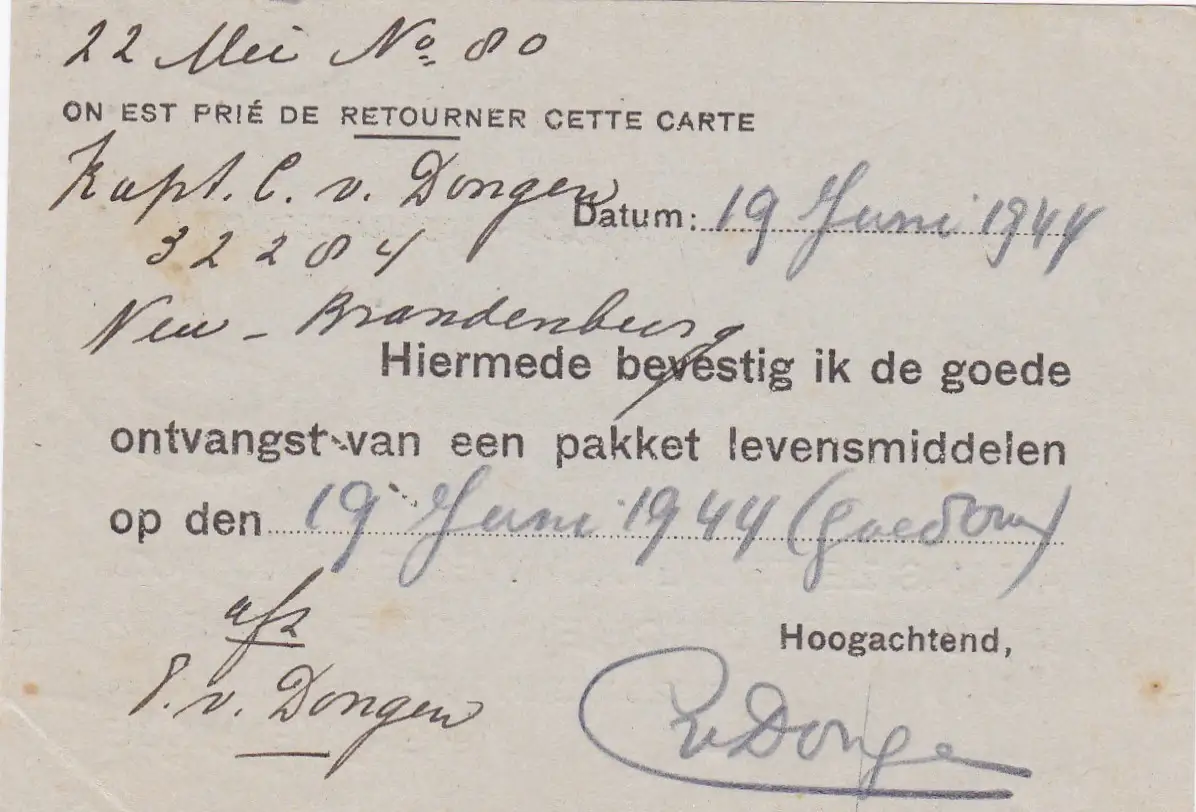 22 Mei No 80
ON EST PRIÉ DE RETOURNER CETTE CARTE
Kapt. C. v. Dongen
Datum: 19 Juni 1944
32284
Neu - Brandenburg
Hiermede bevestig ik de goede
ontvangst van een pakket levensmiddelen
op den 19 Juni 1944 (
afz
Hoogachtend,
P. v. Dongen
CvDongen